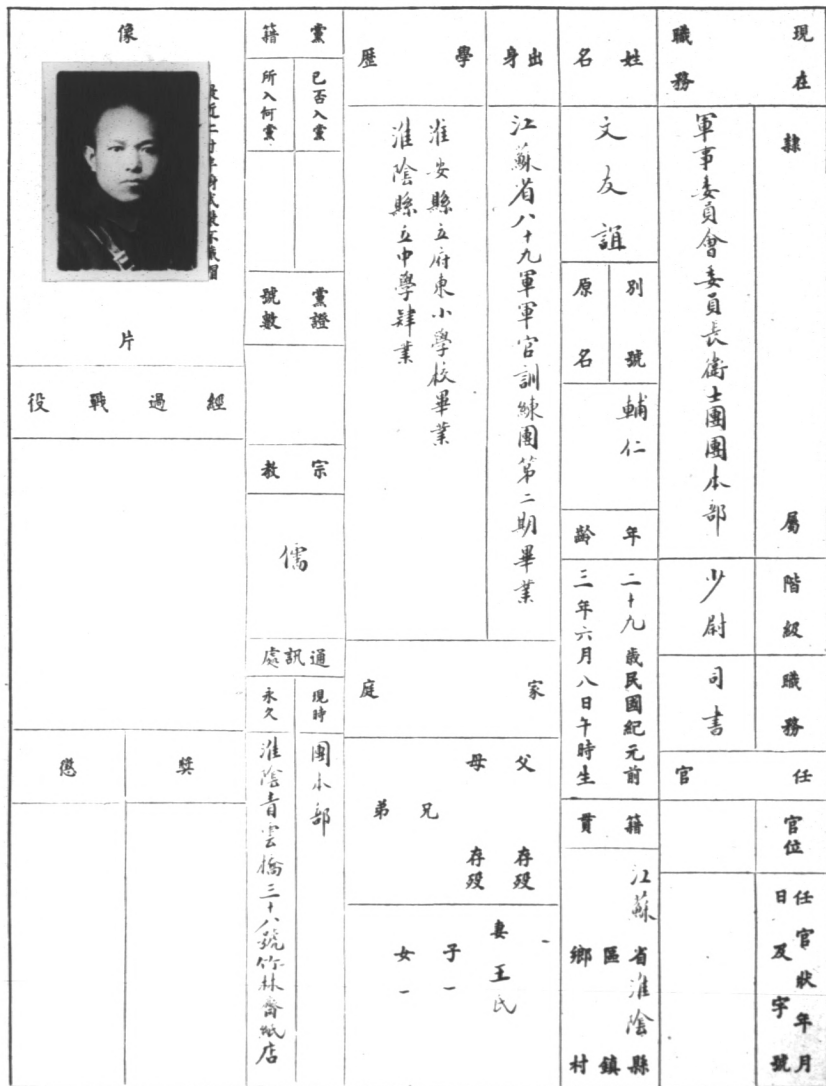 現在職務
隸屬
軍事委員會委員長衛士團團本部
階級
少尉
職務
司書
任官
官位
任官狀年月日及字號
姓名
文友誼
別號
原名
輔仁
年齡
二十九歲民國紀元前
三年六月八日午時生
籍貫
江蘇省淮陰縣
區鎮
鄉村
出身
江蘇省八十九軍軍官訓練團第二期畢業
學歷
淮安縣立府東小學校畢業
淮陰縣立中學肄業
家庭
父 存歿
母 存歿
兄
弟
妻王氏
子一
女一
黨籍
已否入黨
所入何黨
黨證號數
宗教
儒
通訊處
現時
團本部
永久
淮陰青雲橋三十八號竹林齋紙店
像片
最近二寸半身武裝不戴帽
經過戰役
獎
懲